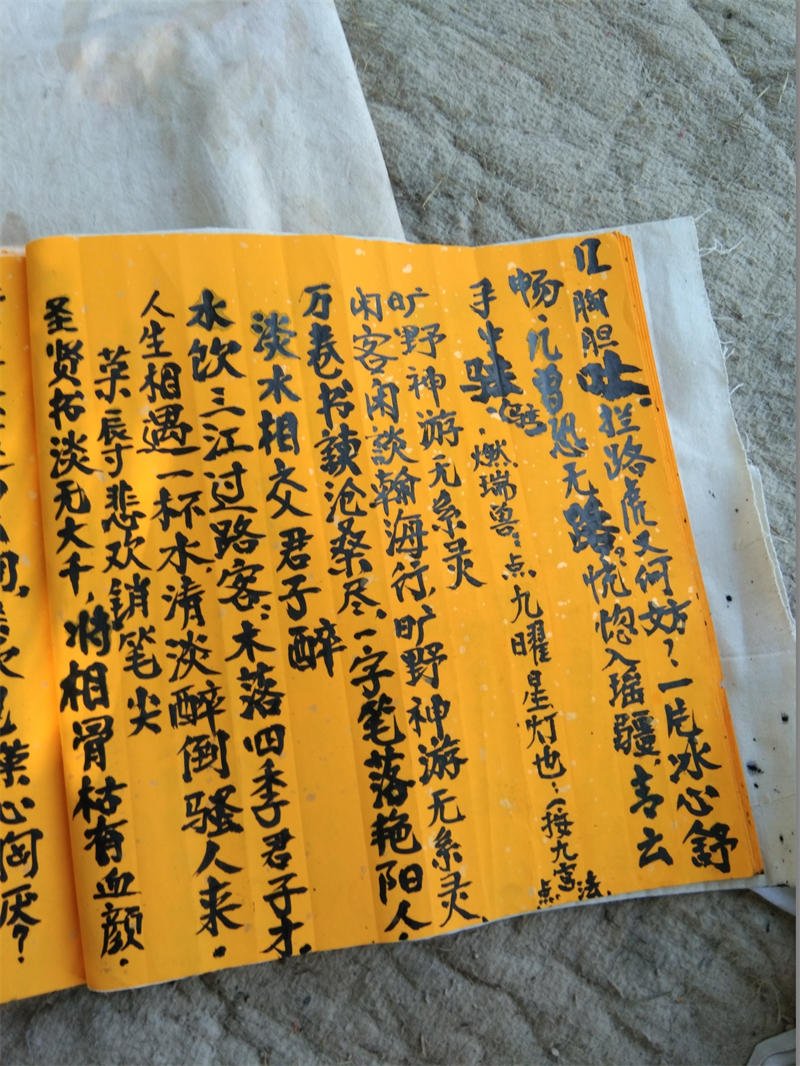 胸胆吐.拦路虎又何妨?一片冰心舒
畅.几曾恐无路?恍惚入瑶疆.青云
手中
燃瑞兽:点九曜星灯也:(接九宫
点法.
旷野神游无系灵
旷野神游无系灵.
闲客闲谈翰海行.
万卷书读沧桑尽.一字笔落艳阳人.
淡水相交君子醉
水饮三江过路客:木落四季君子才.
人生相遇一杯水清淡醉倒骚人来.
菜辰寸悲欢销笔尖
圣贤枯淡无大千,将相骨枯有血颜.